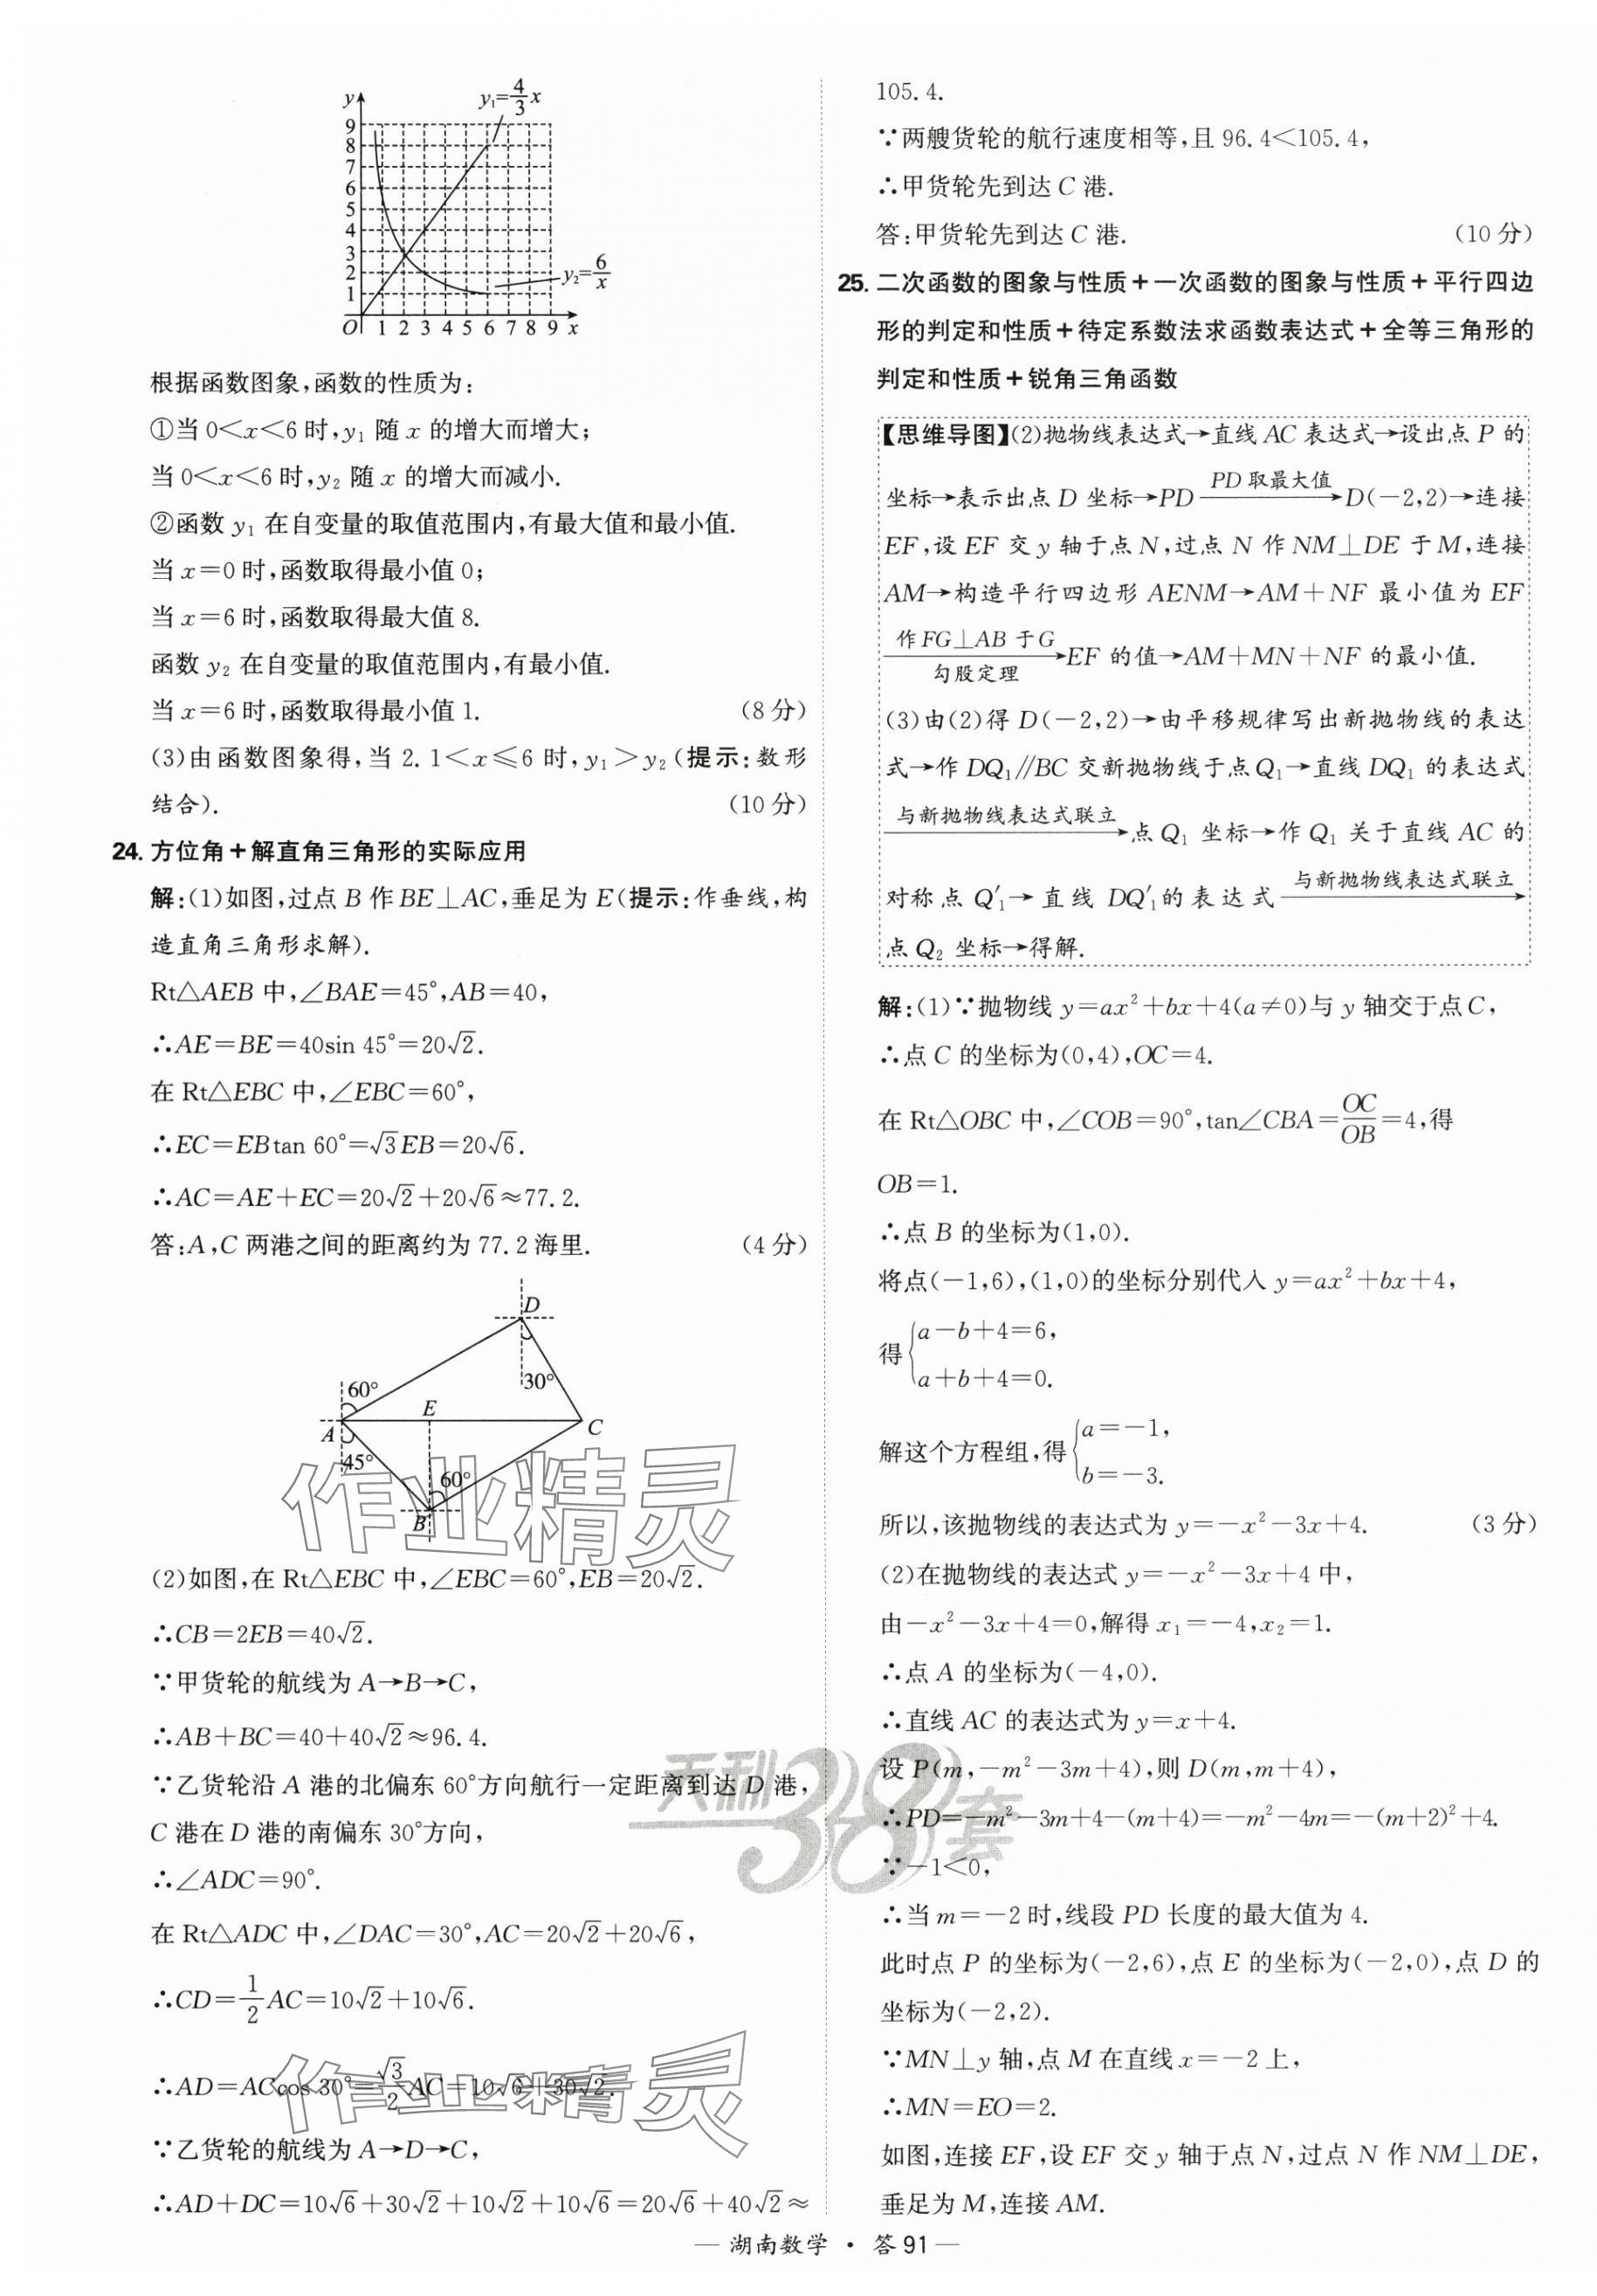 y
y₁=4/3 x
9
8
7
6
5
4
3
2
1
y₂=6/x
O 1 2 3 4 5 6 7 8 9 x
根据函数图象,函数的性质为:
①当 0<x<6 时,y₁ 随 x 的增大而增大;
当 0<x<6 时,y₂ 随 x 的增大而减小.
②函数 y₁ 在自变量的取值范围内,有最大值和最小值.
当 x=0 时,函数取得最小值 0;
当 x=6 时,函数取得最大值 8.
函数 y₂ 在自变量的取值范围内,有最小值.
当 x=6 时,函数取得最小值 1. (8 分)
(3)由函数图象得,当 2.1<x≤6 时,y₁>y₂(提示:数形
结合). (10 分)
24. 方位角+解直角三角形的实际应用
解:(1)如图,过点 B 作 BE⊥AC,垂足为 E(提示:作垂线,构
造直角三角形求解).
Rt△AEB 中,∠BAE=45°,AB=40,
∴AE=BE=40sin 45°=20√2.
在 Rt△EBC 中,∠EBC=60°,
∴EC=EBtan 60°=√3EB=20√6.
∴AC=AE+EC=20√2+20√6≈77.2.
答:A,C 两港之间的距离约为 77.2 海里. (4 分)
D
60°
30°
E
A
C
45°
60°
B
(2)如图,在 Rt△EBC 中,∠EBC=60°,EB=20√2.
∴CB=2EB=40√2.
∵甲货轮的航线为 A→B→C,
∴AB+BC=40+40√2≈96.4.
∵乙货轮沿 A 港的北偏东 60°方向航行一定距离到达 D 港,
C 港在 D 港的南偏东 30°方向,
∴∠ADC=90°.
在 Rt△ADC 中,∠DAC=30°,AC=20√2+20√6,
∴CD=1/2 AC=10√2+10√6.
∴AD=ACcos 30°=√3/2 AC=10√6+30√2.
∵乙货轮的航线为 A→D→C,
∴AD+DC=10√6+30√2+10√2+10√6=20√6+40√2≈
105.4.
∵两艘货轮的航行速度相等,且 96.4<105.4,
∴甲货轮先到达 C 港.
答:甲货轮先到达 C 港. (10 分)
25. 二次函数的图象与性质+一次函数的图象与性质+平行四边
形的判定和性质+待定系数法求函数表达式+全等三角形的
判定和性质+锐角三角函数
【思维导图】(2)抛物线表达式→直线 AC 表达式→设出点 P 的
坐标→表示出点 D 坐标→PD PD 取最大值→D(-2,2)→连接
EF,设 EF 交 y 轴于点 N,过点 N 作 NM⊥DE 于 M,连接
AM→构造平行四边形 AENM→AM+NF 最小值为 EF
作 FG⊥AB 于 G 勾股定理→EF 的值→AM+MN+NF 的最小值.
(3)由(2)得 D(-2,2)→由平移规律写出新抛物线的表达
式→作 DQ₁∥BC 交新抛物线于点 Q₁→直线 DQ₁ 的表达式
与新抛物线表达式联立→点 Q₁ 坐标→作 Q₁ 关于直线 AC 的
对称点 Q′₁→直线 DQ′₁的表达式 与新抛物线表达式联立→
点 Q₂ 坐标→得解.
解:(1)∵抛物线 y=ax²+bx+4(a≠0)与 y 轴交于点C,
∴点 C 的坐标为(0,4),OC=4.
在 Rt△OBC 中,∠COB=90°,tan∠CBA=OC/OB=4,得
OB=1.
∴点 B 的坐标为(1,0).
将点(-1,6),(1,0)的坐标分别代入 y=ax²+bx+4,
得{a-b+4=6,
a+b+4=0.
解这个方程组,得{a=-1,
b=-3.
所以,该抛物线的表达式为 y=-x²-3x+4. (3 分)
(2)在抛物线的表达式 y=-x²-3x+4 中,
由-x²-3x+4=0,解得 x₁=-4,x₂=1.
∴点 A 的坐标为(-4,0).
∴直线 AC 的表达式为 y=x+4.
设 P(m,-m²-3m+4),则 D(m,m+4),
∴PD=-m²-3m+4-(m+4)=-m²-4m=-(m+2)²+4.
∵-1<0,
∴当 m=-2 时,线段 PD 长度的最大值为 4.
此时点 P 的坐标为(-2,6),点 E 的坐标为(-2,0),点 D 的
坐标为(-2,2).
∵MN⊥y 轴,点 M 在直线 x=-2 上,
∴MN=EO=2.
如图,连接 EF,设 EF 交 y 轴于点 N,过点 N 作 NM⊥DE,
垂足为 M,连接 AM.
作业精灵
天利38套
作业精灵
— 湖南数学 · 答 91 —